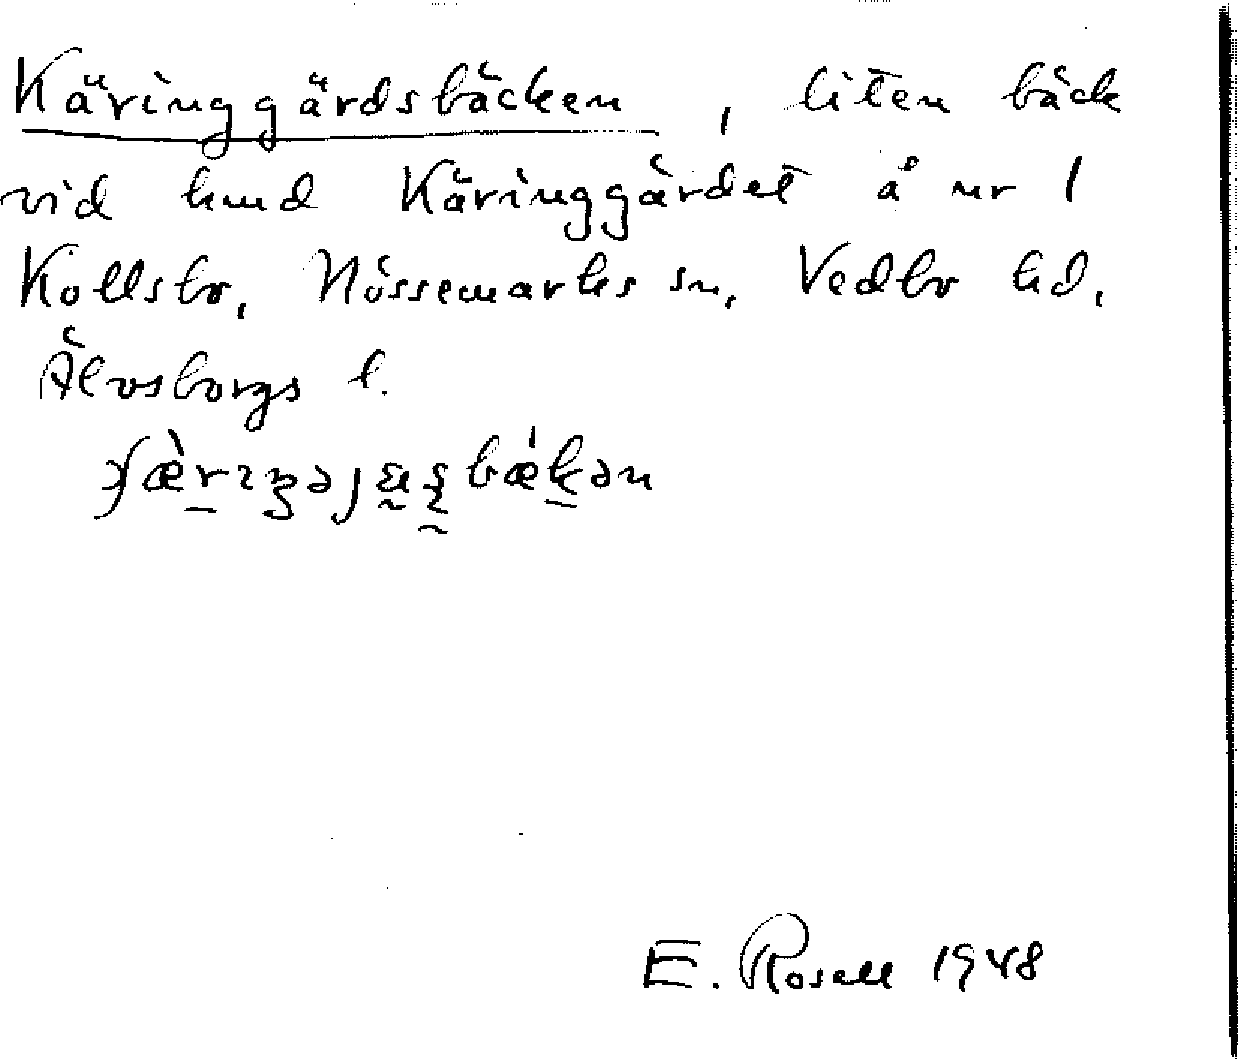 Käringgärdsbäcken, liten bäck
vid hmd Käringgärdet å nr 1
Kollsbo, Nössemarks sn, Vedbo hd,
Älvsborgs l.
E. Rosell 1948